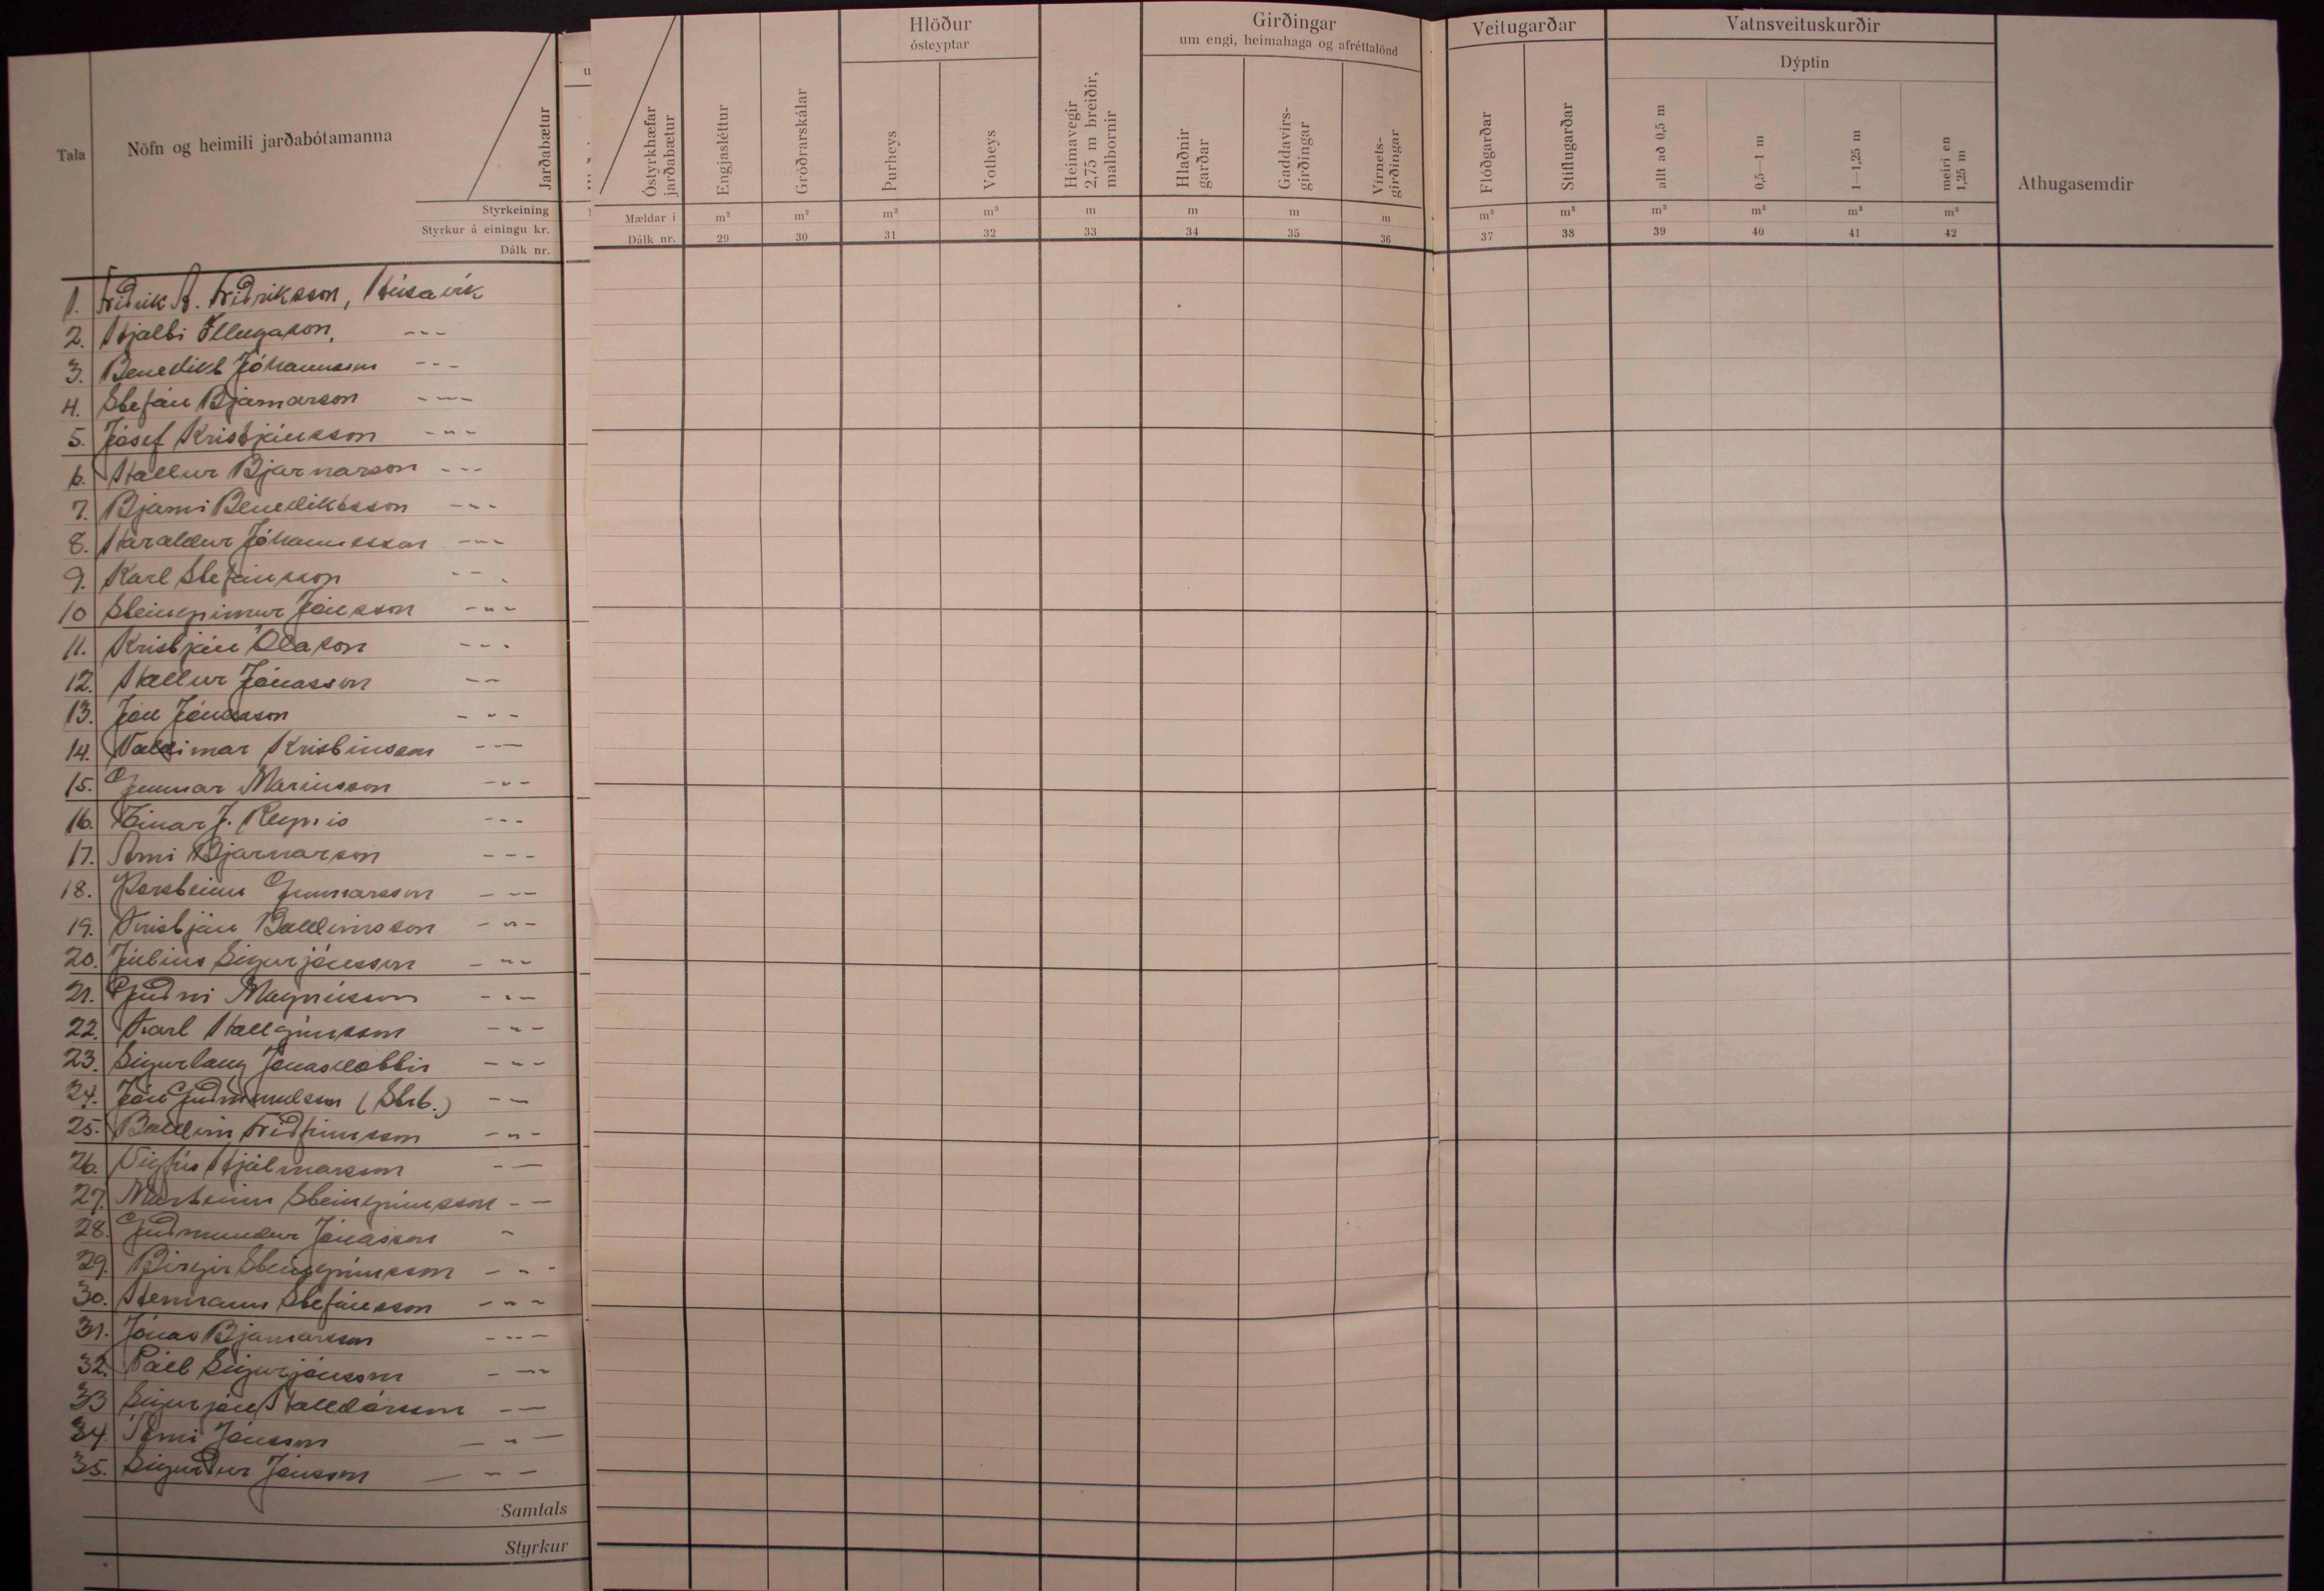 Tala
Nöfn og heimili jarðabótamanna
Jarðabætur
Styrkeining
Styrkur á einingu kr.
Dálk nr.
Óstyrkhæfar jarðabætur
Mældar í
Dálk nr.
Engjasléttur m² 29
Gróðrarskálar m² 30
Hlöður
ósteyptar
Þurheys m³ 31
Votheys m³ 32
Heimavegir 2,75 m breiðir, malbornir m 33
Girðingar
um engi, heimahaga og afréttalönd
Hlaðnir garðar m 34
Gaddavírs-girðingar m 35
Vírnets-girðingar m 36
Veitugarðar
Flóðgarðar m³ 37
Stíflugarðar m³ 38
Vatnsveituskurðir
Dýptin
allt að 0,5 m m³ 39
0,5—1 m m³ 40
1—1,25 m m³ 41
meiri en 1,25 m m³ 42
Athugasemdir
1. Friðrik A. Friðriksson, Húsavík
2. Hjalti Illugason, ---
3. Benedikt Jóhannsson ---
4. Stefán Bjarnarson ---
5. Jósef Kristjánsson -"-
6. Hallur Bjarnarson ---
7. Bjarni Benediktsson ---
8. Haraldur Jóhannesson ---
9. Karl Stefánsson ---
10 Steingrímur Jónsson -"-
11. Kristján Ólason ---
12. Hallur Jónasson --
13. Jón Jónasson -"-
14. Valdimar Kristinsson ---
15. Gunnar Maríusson -"-
16. Einar J. Reynis ---
17. Árni Bjarnarson ---
18. Þorsteinn Gunnarsson ---
19. Kristján Baldvinsson -"-
20. Júlíus Sigurjónsson -"-
21. Guðni Magnússon -"-
22. Karl Hallgrímsson -"-
23. Sigurlaug Jónasdóttir -"-
24. Jón Guðmundsson (Strb.) --
25. Baldvin Friðfinnsson -"-
26. Vigfús Hjálmarsson --
27. Marteinn Steingrímsson --
28. Guðmundur Jónasson -
29. Birgir Steingrímsson -"-
30. Hermann Stefánsson -"-
31. Jónas Bjarnarson -"-
32. Páll Sigurjónsson -"-
33 Sigurjón Halldórsson --
34. Árni Jónsson -"-
35. Sigurður Jónsson -"-
Samtals
Styrkur